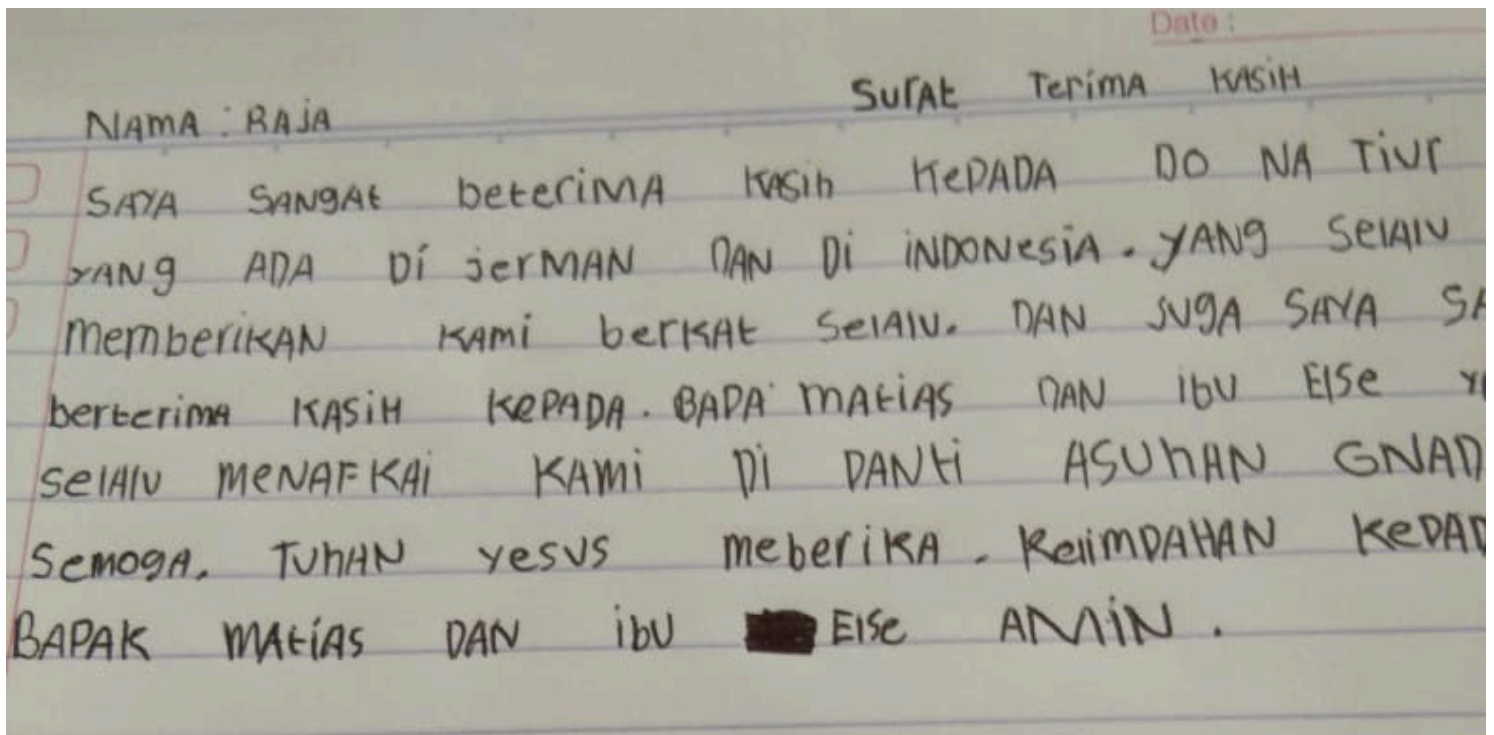 Date :
NAMA : RAJA
Surat Terima KASIH
SAYA SANGAt beterimA KASih KEPADA DO NA Tiur
YANG ADA Di jerMAN DAN Di iNDONesiA. YANG SelAlu
memberiKAN KAmi berKAt SelAlu. DAN JUGA SAYA SA
berterimA KASiH KePADA. BAPA' MAtiAS DAN ibU ElSe
SelAlU MeNAFKAi KAMi Di PANti ASUhAN GNAD
SemogA. TUhAN YesUS meberiKA. KelimPAHAN KePAD
BAPAK MAtiAS DAN ibU ElSe AMiN.